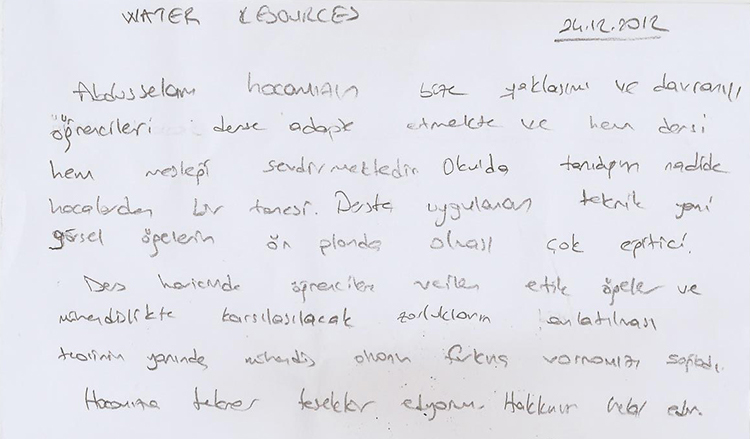 WATER RESOURCES 24.12.2012
Abdusselam hocamızın bize yaklaşımı ve davranışı
öğrencileri derse adapte etmekte ve hem dersi
hem mesleği sevdirmektedir. Okulda tanıdığım nadide
hocalardan bir tanesi. Derste uygulanan teknik yani
görsel öğelerin ön planda olması çok eğitici.
Ders haricinde öğrencilere verilen etik öğeler ve
mühendislikte karşılaşılacak zorlukların anlatılması
teorinin yanında mühendis olmanın farkına varmamızı sağladı.
Hocamıza tekrar teşekkür ediyorum. Hakkını helal edin.